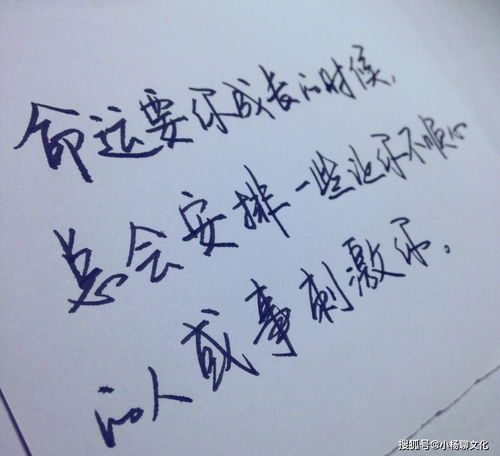 命运要你成长的时候，
总会安排一些让你不顺心
的人或事刺激你。
搜狐号@小杨聊文化